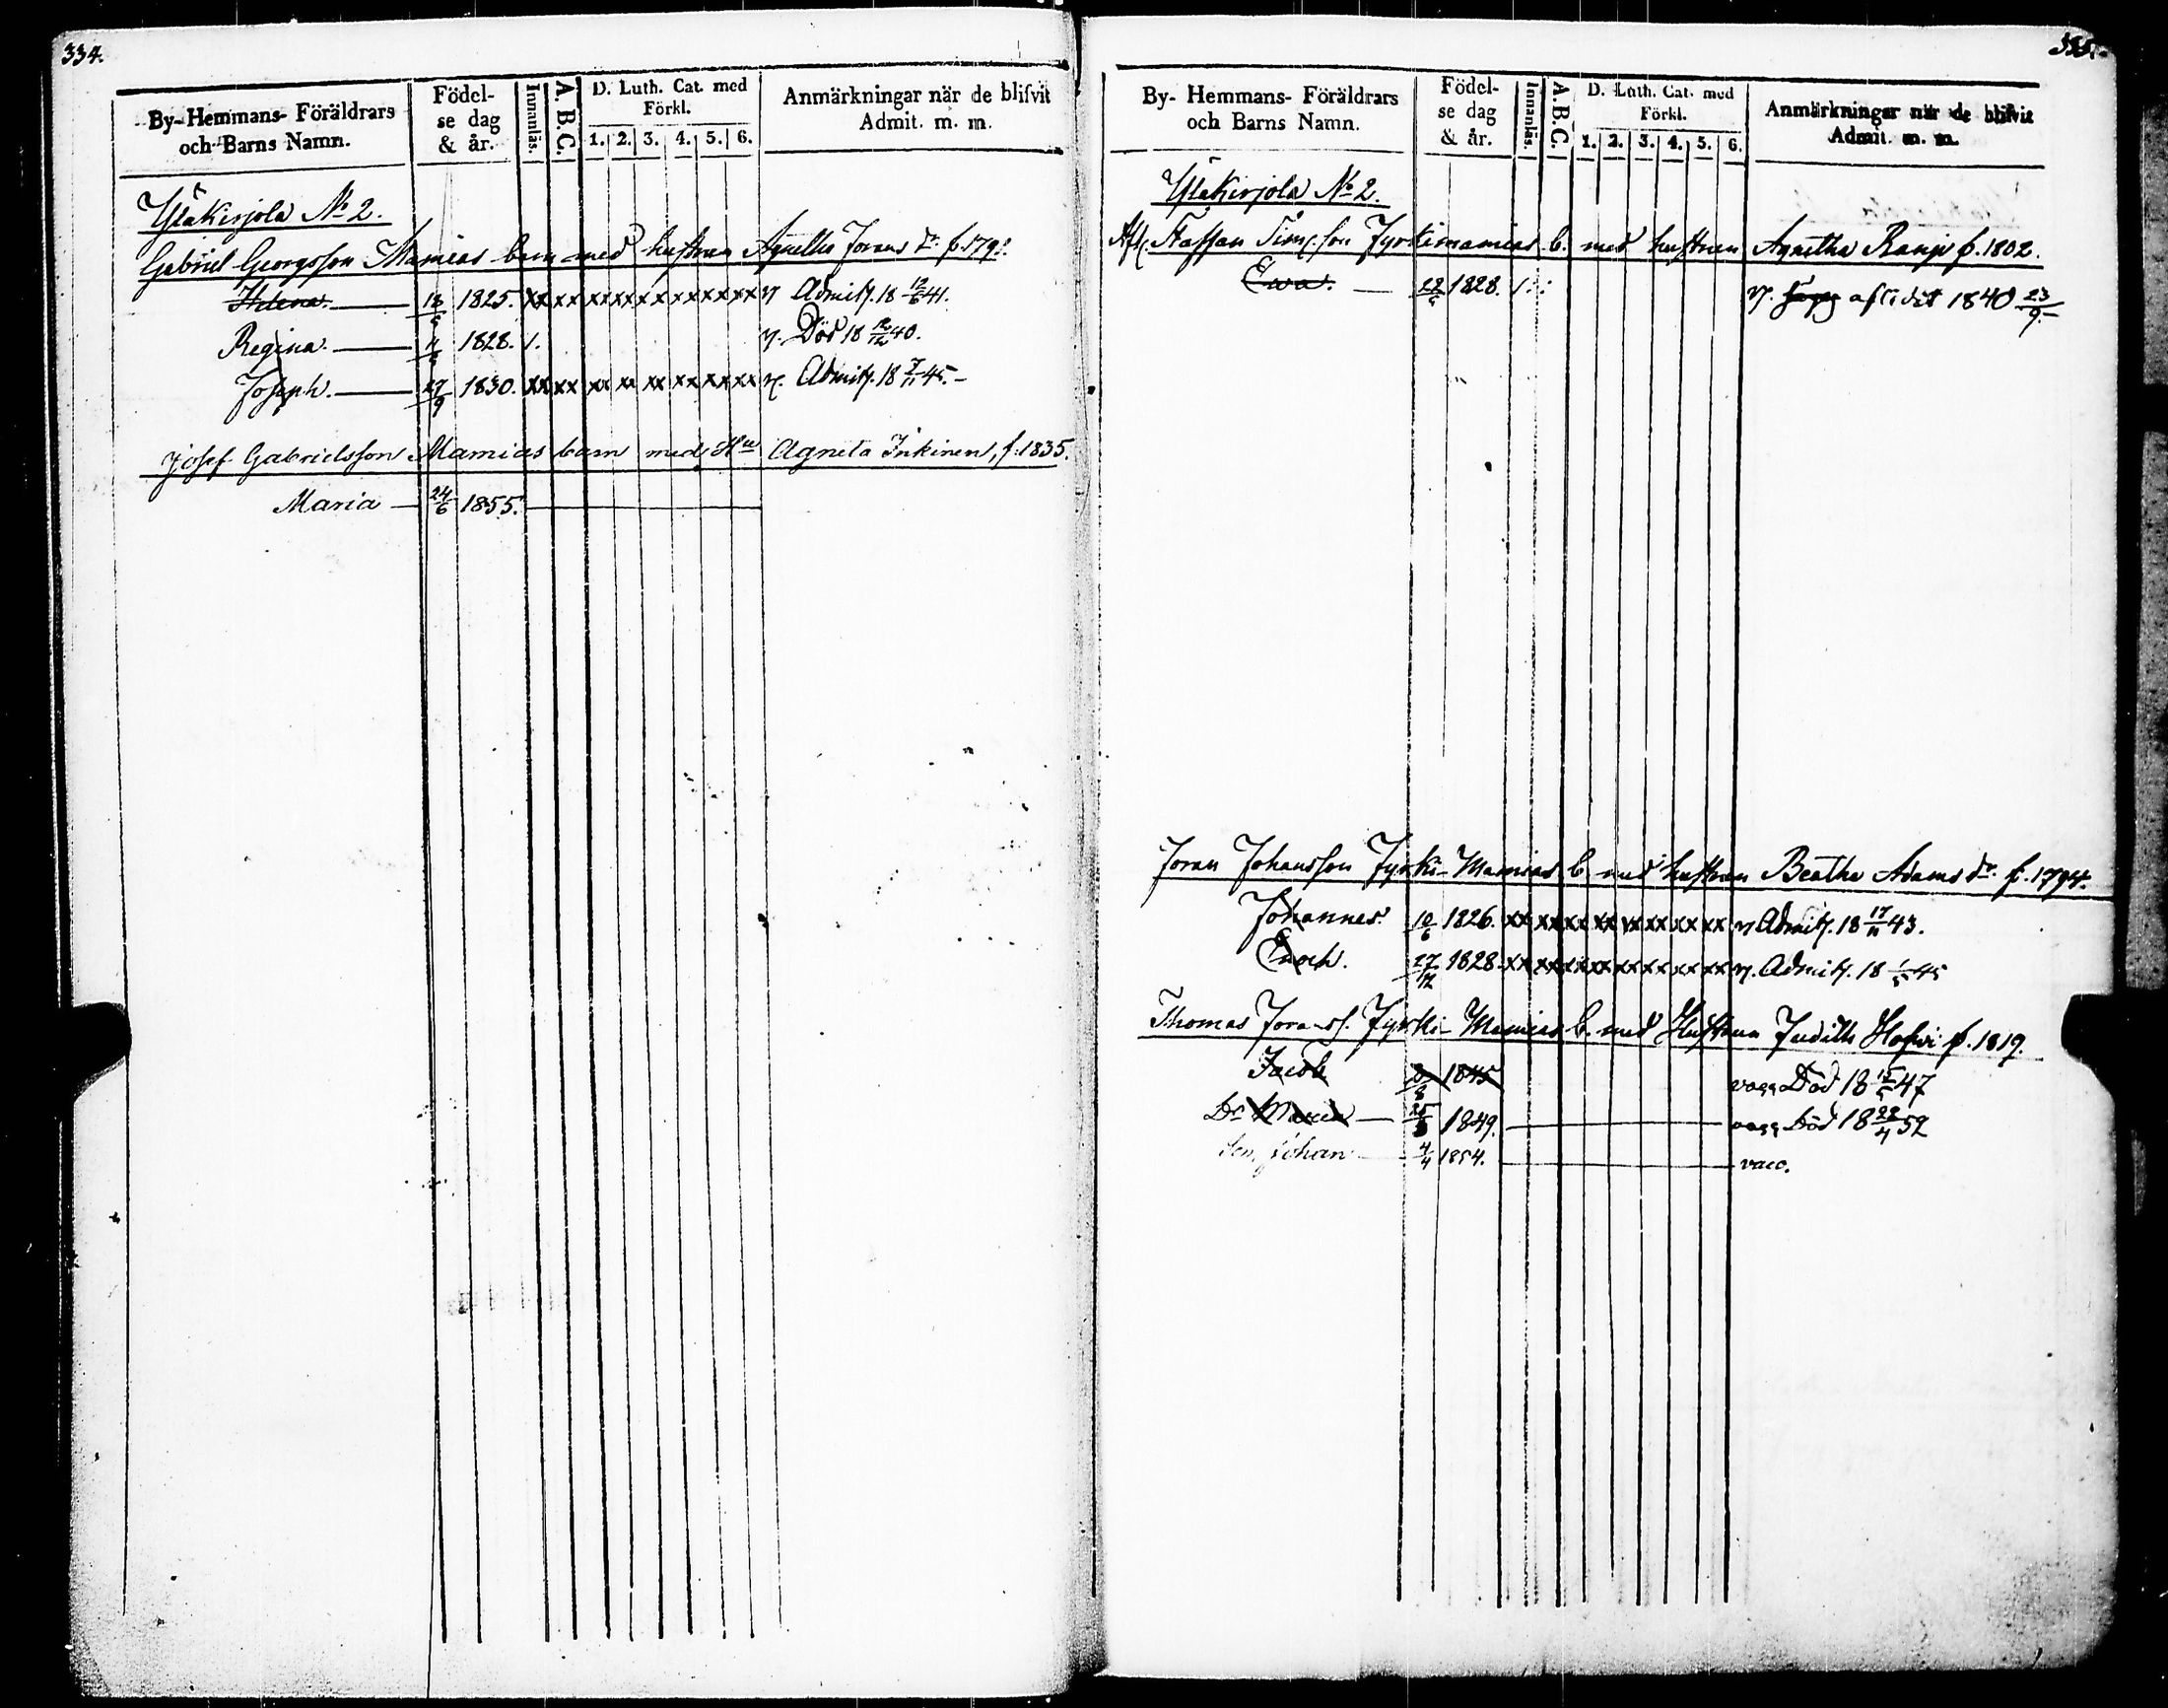 334.
By-Hemmans- Föräldrars och Barns Namn. Födel-se dag & år. Innanläs. A.B.C. D. Luth. Cat. med Förkl. 1. 2. 3. 4. 5. 6. Anmärkningar när de blifvit Admit. m. m.
Yläkirjola No 2.
Gabriel Georgsson Mamias barn med hustrun Agnetha Jorans dr f. 179
Helena. 18/ 1825. xx xx xx xx xx xx xx xx Admitt. 18 12/6 41.
Regina. 11/ 1828. /. Död 18 /12 40.
Joseph. 27/9 1830. xx xx xx xx xx xx xx xx Admitt. 18 7/11 45.-
Josef Gabrielsson Mamias barn med Hu Agneta Inkinen, f. 1835.
Maria 24/6 1855.
335.
By- Hemmans- Föräldrars och Barns Namn. Födel-se dag & år. Innanläs. A.B.C. D. Luth. Cat. med Förkl. 1. 2. 3. 4. 5. 6. Anmärkningar när de blifvit Admit. m. m.
Yläkirjola No 2.
Afl. Staffan Sim.son Jyrkimamias b. med hustrun Agnetha Ranji f. 1802.
Ewa. 22/ 1828. aflidit 1840 23/9.-
Joran Johansson Jyrki-Mamias b med hustrun Beatha Adams dr. f. 1794.
Johannes. 10/6 1826. xx xx xx xx xx xx xx xx Admitt. 18 17/11 43.
Enoch. 27/12 1828 xx xx xx xx xx xx xx xx Admitt. 18 1/5 45
Thomas Jora-s. Jyrki-Mamias b. med Hustrun Judith Hofwi f. 1819.
Jacob /8 1845 vacc Död 18 15/5 47
Dr Maria 25/3 1849. vacc Död 18 22/4 52
Son Johan 4/4 1854. vacc.